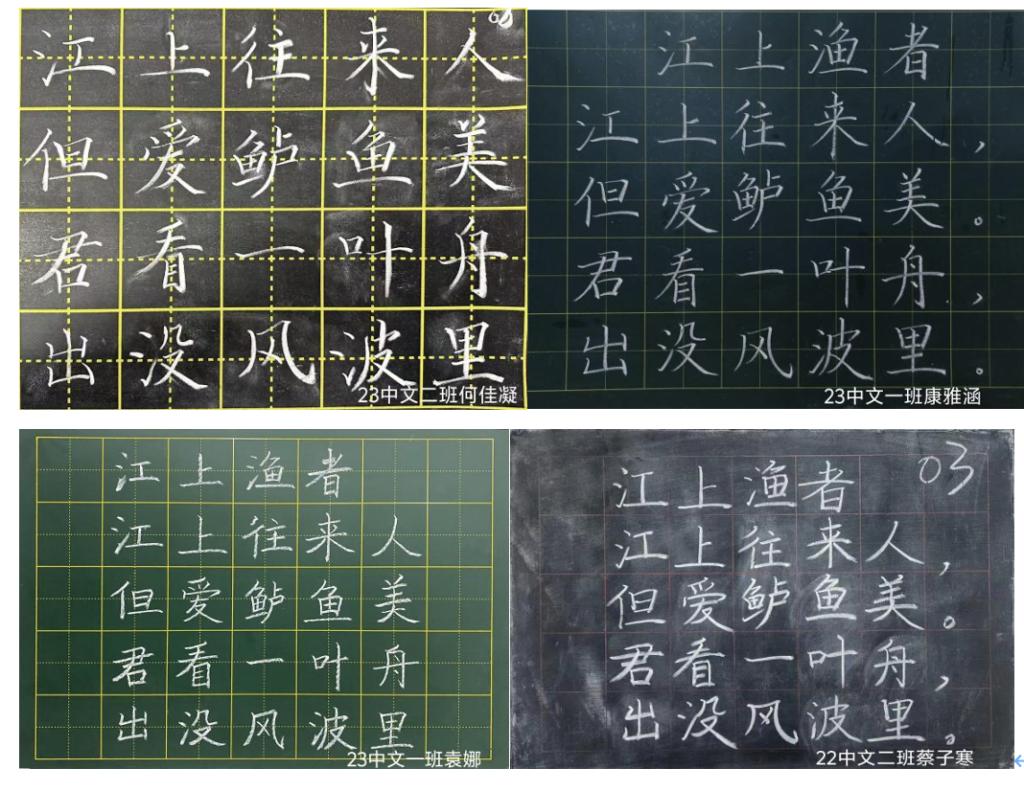 江上往来人
但爱鲈鱼美
君看一叶舟
出没风波里
23中文二班何佳凝
江上渔者
江上往来人，
但爱鲈鱼美。
君看一叶舟，
出没风波里。
23中文一班康雅涵
江上渔者
江上往来人
但爱鲈鱼美
君看一叶舟
出没风波里
23中文一班袁娜
03
江上渔者
江上往来人，
但爱鲈鱼美。
君看一叶舟，
出没风波里。
22中文二班蔡子寒